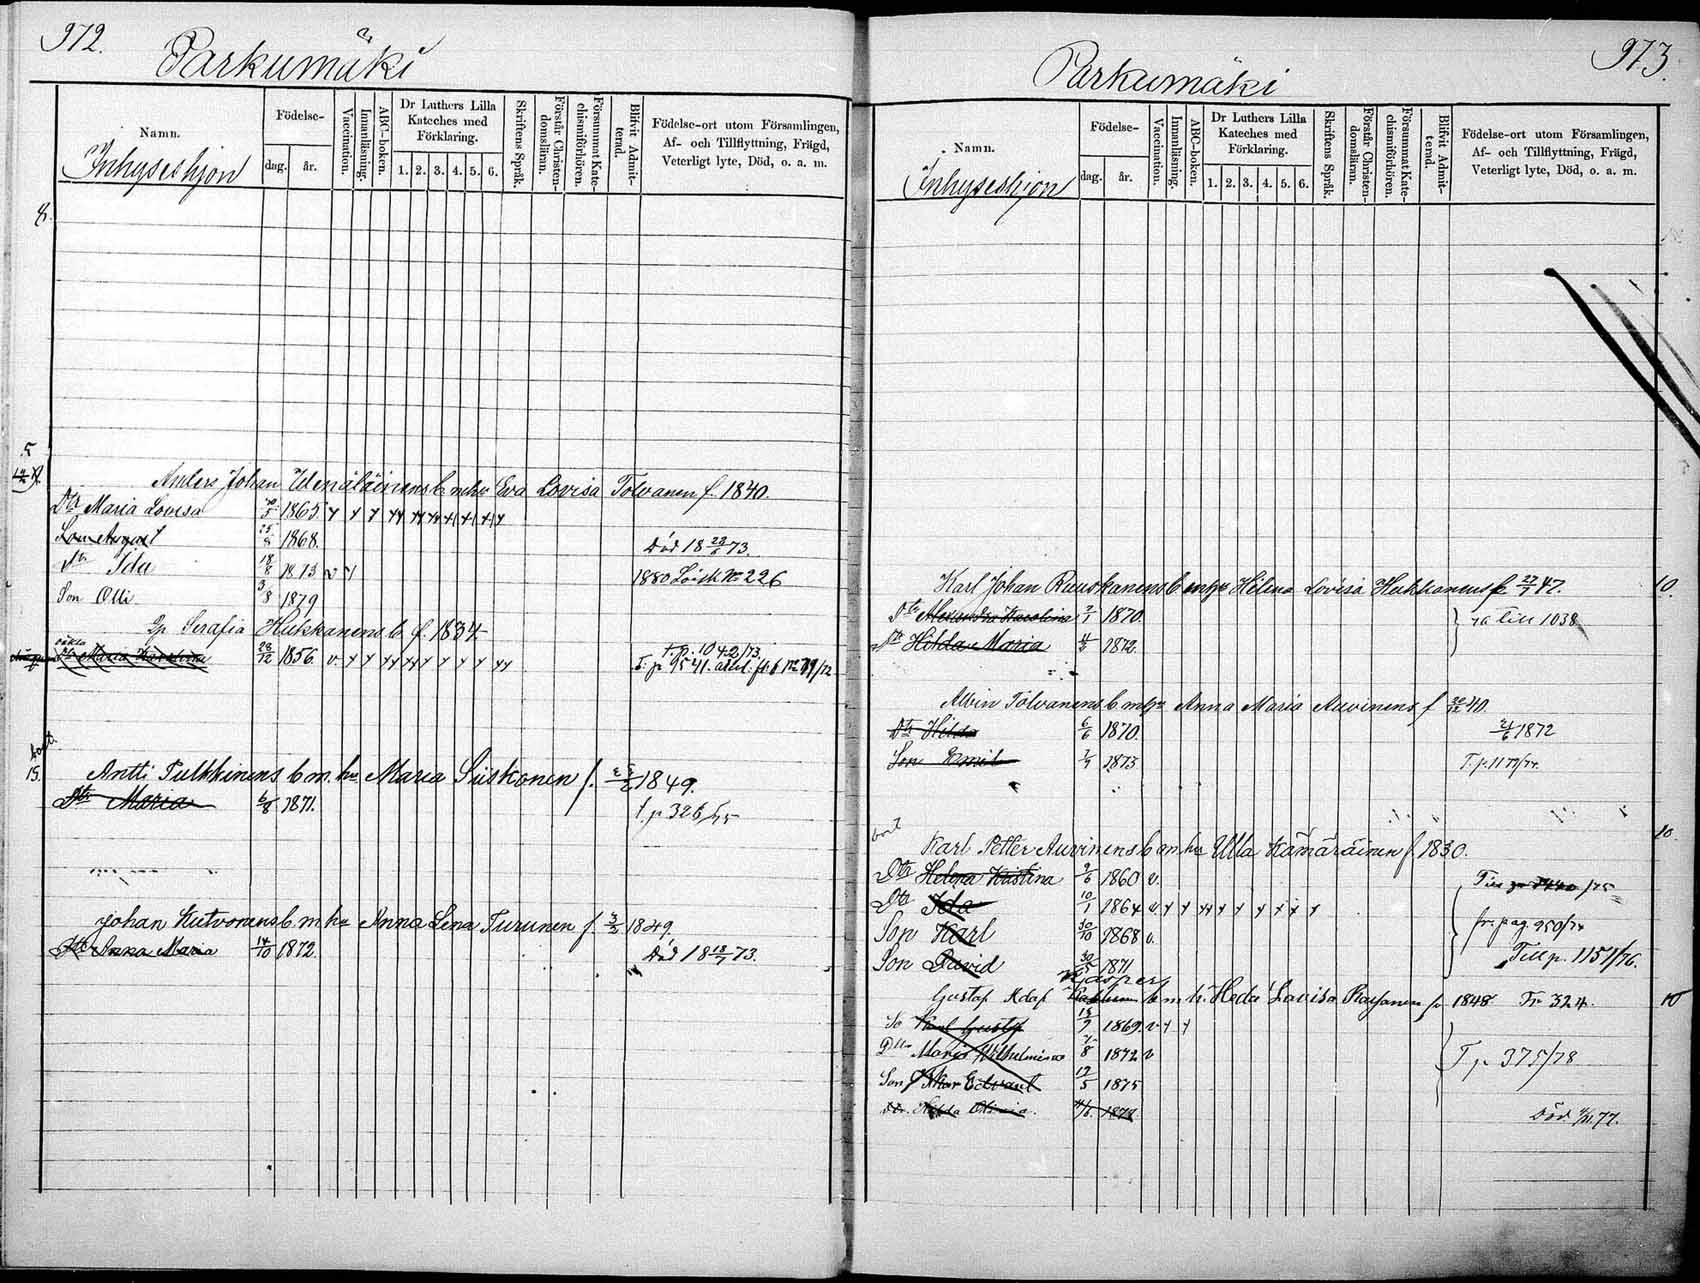 972.
Parkumäki
Namn.
Inhyseshjon
Födelse-
dag.
år.
Vaccination.
Innanläsning.
ABC-boken.
Dr Luthers Lilla
Kateches med
Förklaring.
1. 2. 3. 4. 5. 6.
Skriftens Språk.
Förstår Christen-
domsläran.
Försummat Kate-
chismiförhören.
Blifvit Admit-
terad.
Födelse-ort utom Församlingen,
Af- och Tillflyttning, Frägd,
Veterligt lyte, Död, o. a. m.
8.
5
Anders Johan b m hu Eva Lovisa Tolvanen f. 1840.
Dtr Maria Lovisa 1865
Son August 25/8 1868. Död 18 23/6 73.
Dtr Ida 18/8 1873 v 1880 226
Son Olli 3/8 1879
Serafia Hukkanens b. f. 1834
Dtr Maria 28/12 1856 v. T.p. 1042/73.
bort.
15. Antti Pulkkinens b m. hu Maria Siiskonen f. 1849.
Dtr Maria 6/8 1871. T. p 326/75
Johan Kutvonens b m hu Anna Lena Turunen f. 3/5 1849.
Dtr Anna Maria 14/10 1872. Död 18 18/7 73.
973.
Parkumäki
Namn.
Inhyseshjon
Födelse-
dag.
år.
Vaccination.
Innanläsning.
ABC-boken.
Dr Luthers Lilla
Kateches med
Förklaring.
1. 2. 3. 4. 5. 6.
Skriftens Språk.
Förstår Christen-
domsläran.
Försummat Kate-
chismiförhören.
Blifvit Admit-
terad.
Födelse-ort utom Församlingen,
Af- och Tillflyttning, Frägd,
Veterligt lyte, Död, o. a. m.
Karl Johan Ruuskanens b m hu Helena Lovisa Hukkanens f 27/7 47. 10
Dtr Alexandra Karolina 7/1 1870. 76 till 1038
Dtr Hilda Maria 4/5 1872.
Albin Tolvanens b m hu Anna Maria Auvinens f 40.
Dtr Hilda 6/6 1870. 21/6 1872
Son Emil 7/7 1873 T.p. 1177/74.
bort 10.
Karl Petter Auvinens b m. hu Ulla Kämäräinen f 1830.
Dtr Helena Kristina 9/6 1860 v. /75
Dtr Ida 10/1 1864 v.
Son Karl 30/10 1868 v. fr. pag. 950/74
Son David 30/5 1871 Till p. 1151/76.
Kasper
Gustaf Adaf b m h. Heda Lavisa f 1848 Fr 324. 10
So Karl Gustaf 18/9 1869. v
Dtr Maria Vilhelmina 8 1872 v T p 375/78
Son Edvard 17/5 1875
Dtr Hilda 1872 Död 77.